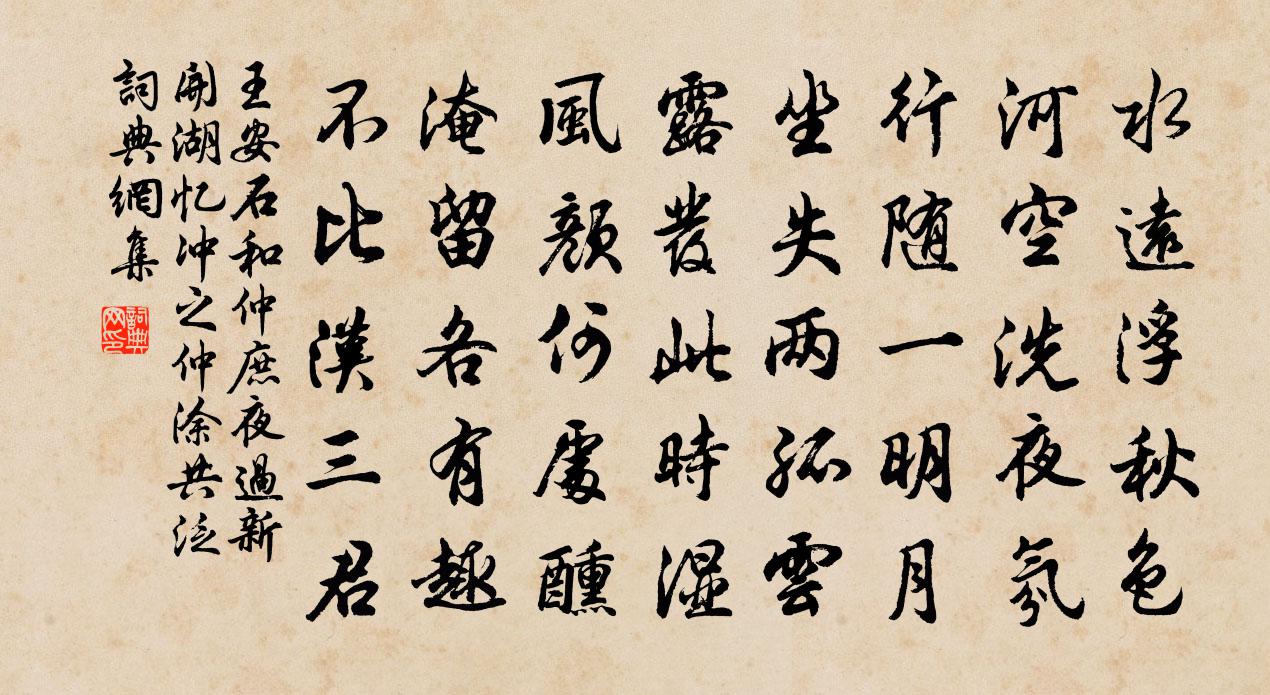 水遠浮秋色
河空洗夜氛
行随一明月
坐失两孤雲
露發此時湿
風顏何處醺
淹留各有趣
不比漢三君
王安石和仲庶夜過新
開湖忆冲之仲涂共泛
詞典網集
詞典网印